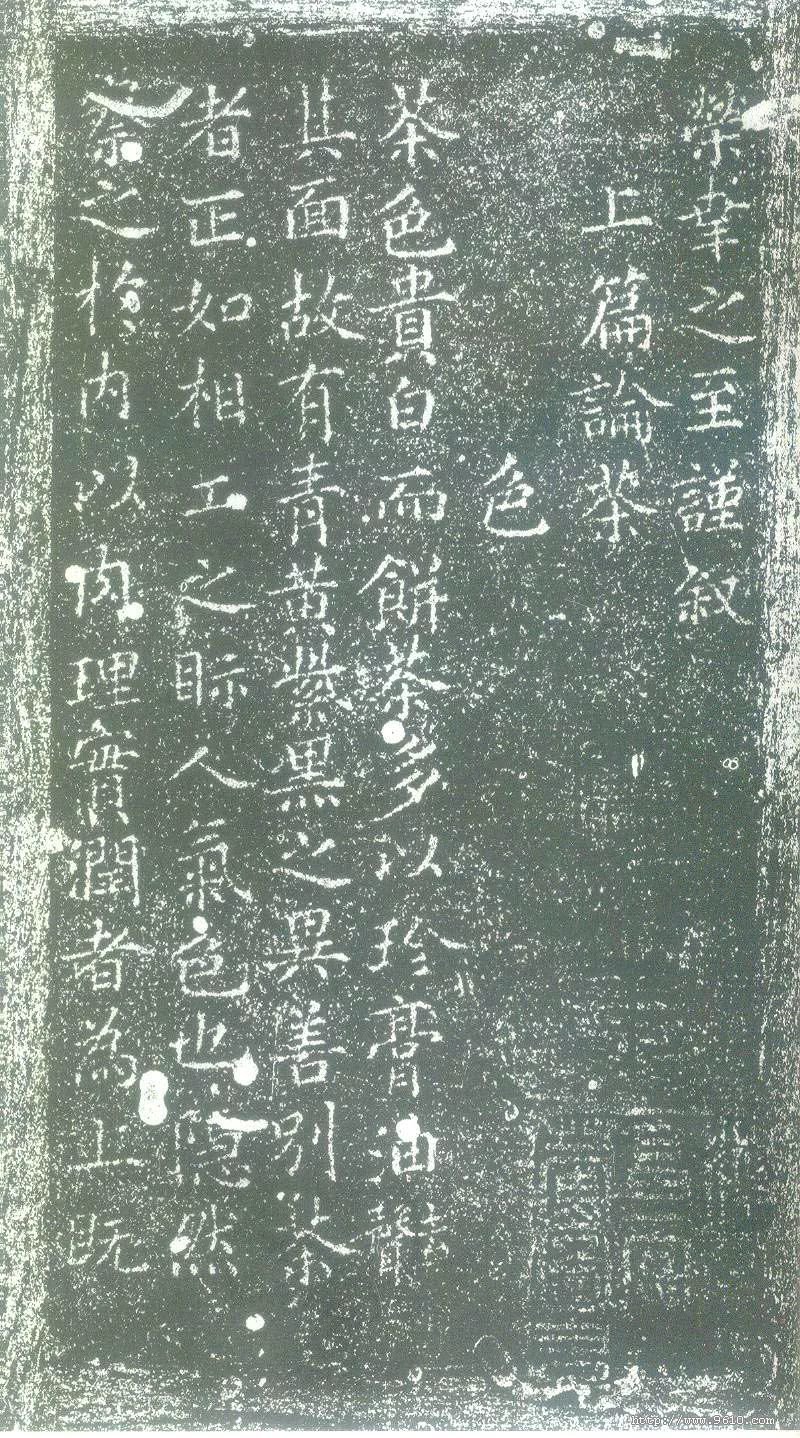 榮幸之至謹叙
上篇論茶
色
茶色貴白而餅茶多以珍膏油去聲
其面故有青黄紫黑之異善别茶
者正如相工之眎人氣色也隱然
察之於内以肉理實潤者為上既
http://www.9610.com